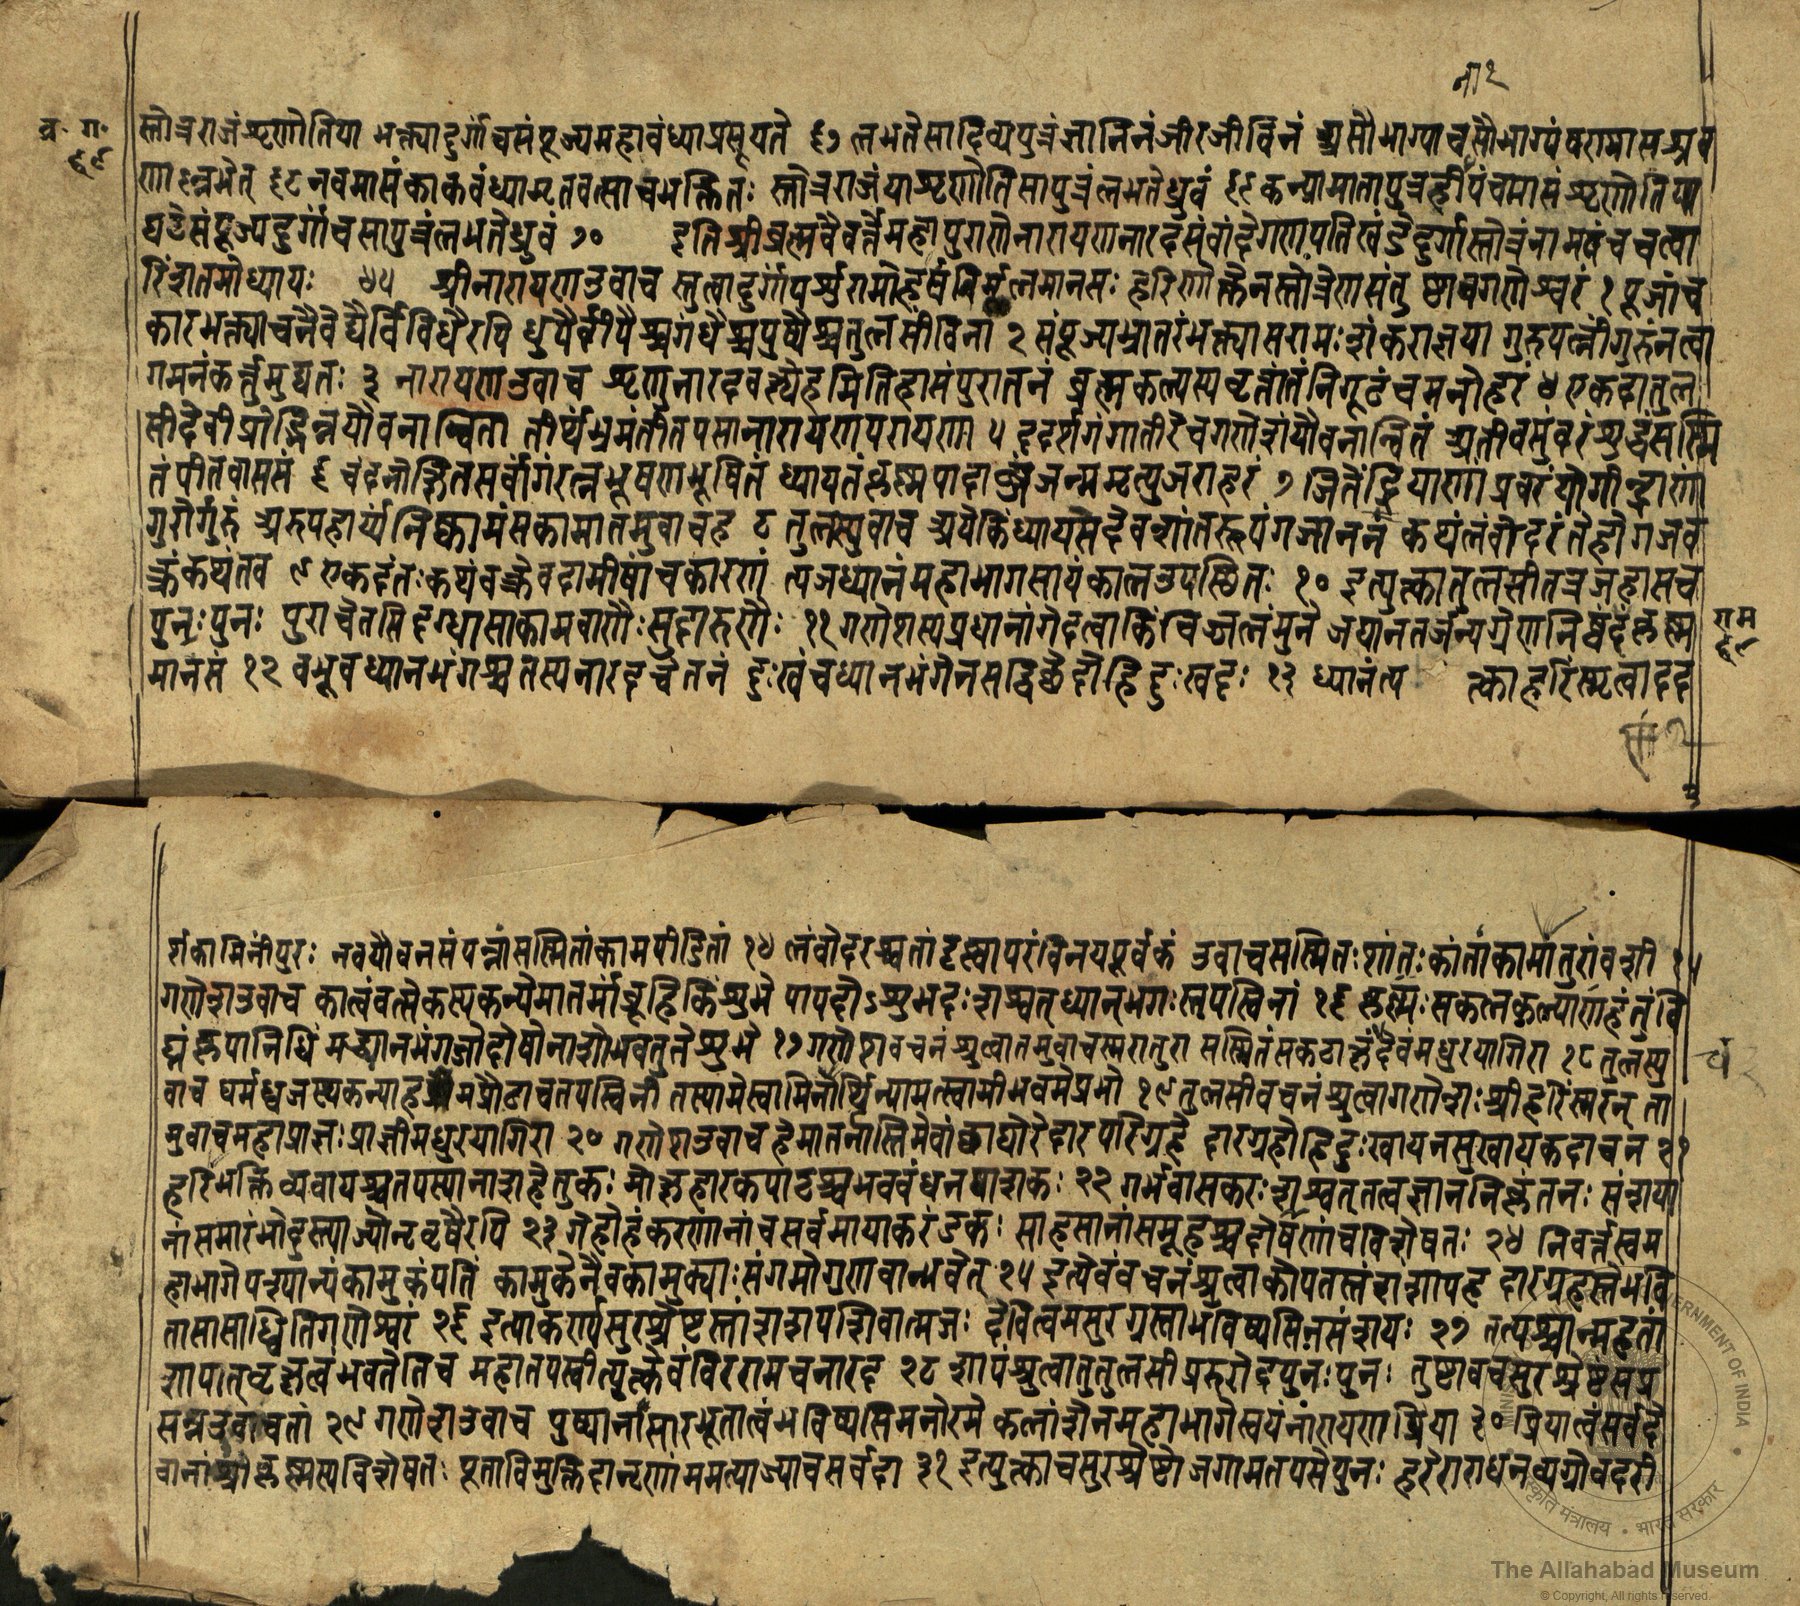 ना२
ब्र॰ ग॰
६९
स्तोत्रराजंशृणोतिया भक्त्यादुर्गांचसंपूज्यमहावंध्याप्रसूयते ६७ लभतेसादिव्यपुत्रंज्ञानिनंचीरजीविनं असौभाग्याचसौभाग्यंषरामासश्रव
णाल्लभेत् ६८ नवमासंकाकवंध्यामृतवत्साचभक्तितः स्तोत्रराजंयाशृणोतिसापुत्रंलभतेध्रुवं ६९ कन्यामातापुत्रहीपंचमासंशृणोतिया
घटेसंपूज्यदुर्गांचसापुत्रंलभतेध्रुवं ७० इतिश्रीब्रह्मवैवर्त्तेमहापुराणेनारायणनारदसंवादेगणपतिखंडेदुर्गास्तोत्रंनामपंचचत्वा
रिंशतमोध्यायः ४५ श्रीनारायणउवाच स्तुत्वादुर्गांपर्शुरामोहर्षनिर्मूलमानसः हरिणोक्तेनस्तोत्रेणसंतुष्टावगणेश्वरं १ पूजांच
कारभक्त्याचनैवेद्यैर्विविधैरपि धुपैर्दीपैश्चगंधैश्चपुष्पैश्चतुलसींविना २ संपूज्यभ्रातरंभक्त्यासरामःशंकराज्ञया गुरुपत्नींगुरुंनत्वा
गमनंकर्त्तुमुद्यतः ३ नारायणउवाच शृणुनारदवक्ष्येहमितिहासंपुरातनं ब्रह्मकल्पस्यवृत्तांतंनिगूढंचमनोहरं ४ एकदातुल
सीदेवीप्रोद्भिन्नयौवनान्विता तीर्थंभ्रमंतीतपसानारायणपरायणा ५ ददर्शगंगातीरेचगणेशंयौवनान्वितं अतीवसुंदरंशुद्धंसस्मि
तंपीतवाससं ६ चंदनोक्षितसर्वांगंरत्नभूषणभूषितं ध्यायतंकृष्णपादाब्जंजन्ममृत्युजराहरं ७ जितेंद्रियाणांप्रवरंयोगीन्द्राणां
गुरोर्गुरुं अरुपहार्य्यंनिष्कामंसकामातमुवाचह ८ तुलस्युवाच अयेकिंध्यायसेदेवशांतरूपंगजाननं कथंलंबोदरंतेहोगजव
क्त्रंकथंतव ९ एकदंतःकथंवक्त्रेवदामीषांचकारणं त्यजध्यानंमहाभागसायंकालउपस्थितः १० इत्युत्कातुलसीतत्रजहासच
पुनःपुनः पुराचेतसिदग्धासाकामबाणैःसुदारुणैः ११ गणेशस्यप्रधानांगेदत्वाकिंचिज्जलंमुने जघानतर्जन्यग्रेणनिष्पंदंकृष्ण
राम
६९
मानसं १२ बभूवध्यानभंगश्चतस्यनारदचेतनं दुःखंचध्यानभंगेनसद्विछेदोहिदुःखदः १३ ध्यानंत्य त्काहरिंस्मृत्वादद
र्शकामिनींपुरः नवयौवनसंपन्नांसस्मितांकामपीडितां १४ लंबोदरश्चतांदृष्ट्वापरंविनयपूर्वकं उवाचसस्मितःशांतःकांतांकामातुरांवशी १५
गणेशउवाच कात्वंवत्सेकस्यकन्येमातर्मांब्रूहिकिंशुभे पापदोऽशुभदःशश्वत्ध्यानभंगःस्तपस्विनां १६ कृष्णःसकलकल्याणंहंतुंवि
घ्नंकृपानिधिं मद्ध्यानभंगजोदोषोनाशोभवतुतेशुभे १७ गणेशवचनंश्रुत्वातमुवाचस्मरातुरा सस्मितंसकटाक्षंदेवंमधुरयागिरा १८ तुलस्यु
वाच धर्मध्वजस्यकन्याहमप्रौढाचतपस्विनी तस्यामेस्वामिनोर्थिन्यामत्स्वामीभवमेप्रभो १९ तुलसीवचनंश्रुत्वागणेशःश्रीहरिंस्मरन् ता
मुवाचमहाप्राज्ञःप्राज्ञींमधुरयागिरा २० गणेशउवाच हेमातर्नास्तिमेवांछाघोरेदारपरिग्रहे दारग्रहोहिदुःखायनसुखायकदाचन २१
हरिभक्तिव्यवायश्चतपस्यानाशहेतुकः मोक्षद्वारकपाटश्चभवबंधनपाशकः २२ गर्भवासकरःशश्वत्तत्वज्ञाननिकृंतनः संशया
नांसमारंभोदुस्त्याज्योनृवृषैरपि २३ गेहोहंकरणानांचसर्वमायाकरंडकः साहसानांसमूहश्चदोषाणांचविशेषतः २४ निवर्त्तस्वम
हाभागेपश्यान्यंकामुकंपतिं कामुकेनैवकामुक्याःसंगमोगुणवान्भवेत् २५ इत्येवंवचनंश्रुत्वाकोपतस्तंशशापह दारग्रहस्तेभवि
तासासाध्वितिगणेश्वरं २६ इत्याकर्ण्यसुरश्रेष्टस्तांशशापशिवात्मजः देवित्वमसुरग्रस्ताभविष्यसिनसंशयः २७ तत्पश्चान्महतां
शापात्वृक्षत्वंभवतेतिच महातपस्वीत्युत्केवंविररामचनारद २८ शापंश्रुत्वातुतुलसीप्ररुरोदपुनःपुनः तुष्टावचसुरश्रेष्ठंसप्र
सन्नउवाचतां २९ गणेशउवाच पुष्पाणांसारभूतात्वंभविष्यसिमनोरमे कलांशेनमहाभागेस्वयंनारायणप्रिया ३० प्रियात्वंसर्वदे
वानांश्रीकृष्णस्यविशेषतः पूताविमुक्तिदानृणांममत्याज्याचसर्वदा ३१ इत्युत्काचसुरश्रेष्टोजगामतपसेपुनः हरेराराधनव्यग्रोबदरी
The Allahabad Museum
© Copyright, All rights reserved.